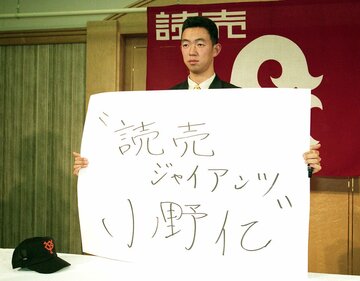 読売
〝読売
ジャイアンツ
小野仁〟